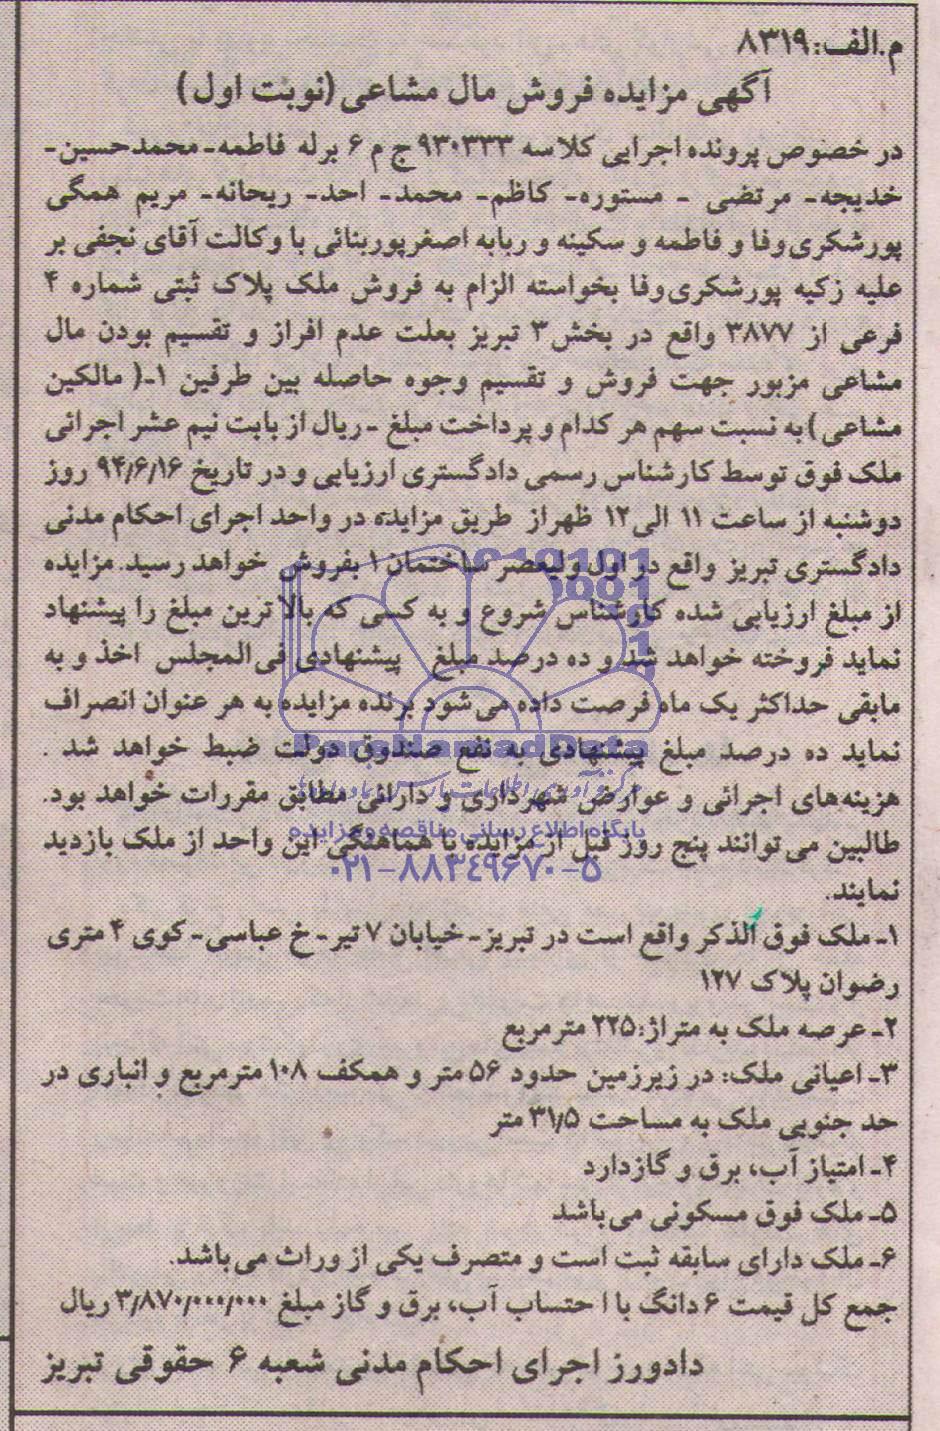 م.الف:۸۳۱۹
آگهی مزایده فروش مال مشاعی (نوبت اول)
در خصوص پرونده اجرایی کلاسه ۹۳۰۳۳۳ ج م ۶ برله فاطمه- محمدحسین-
خدیجه- مرتضی - مستوره- کاظم- محمد- احد- ریحانه- مریم همگی
پورشکری‌وفا و فاطمه و سکینه و ربابه اصغرپوربنائی با وکالت آقای نجفی بر
علیه زکیه پورشکری‌وفا بخواسته الزام به فروش ملک پلاک ثبتی شماره ۴
فرعی از ۳۸۷۷ واقع در بخش۳ تبریز بعلت عدم افراز و تقسیم بودن مال
مشاعی مزبور جهت فروش و تقسیم وجوه حاصله بین طرفین ۱-( مالکین
مشاعی )به نسبت سهم هر کدام و پرداخت مبلغ -ریال از بابت نیم عشر اجرائی
ملک فوق توسط کارشناس رسمی دادگستری ارزیابی و در تاریخ ۹۴/۶/۱۶ روز
دوشنبه از ساعت ۱۱ الی۱۲ ظهراز طریق مزایده در واحد اجرای احکام مدنی
دادگستری تبریز واقع در اول ولیعصر ساختمان۱ بفروش خواهد رسید. مزایده
از مبلغ ارزیابی شده کارشناس شروع و به کسی که بالاترین مبلغ را پیشنهاد
نماید فروخته خواهد شد و ده درصد مبلغ پیشنهادی فی‌المجلس اخذ و به
مابقی حداکثر یک ماه فرصت داده می‌شود برنده مزایده به هر عنوان انصراف
نماید ده درصد مبلغ پیشنهادی به نفع صندوق دولت ضبط خواهد شد .
هزینه‌های اجرائی و عوارض شهرداری و دارائی مطابق مقررات خواهد بود.
طالبین می‌توانند پنج روز قبل از مزایده با هماهنگی این واحد از ملک بازدید
نمایند.
۱- ملک فوق الذکر واقع است در تبریز- خیابان ۷ تیر- خ عباسی- کوی ۴ متری
رضوان پلاک ۱۲۷
۲- عرصه ملک به متراژ:۲۲۵ مترمربع
۳- اعیانی ملک: در زیرزمین حدود ۵۶ متر و همکف ۱۰۸ مترمربع و انباری در
حد جنوبی ملک به مساحت ۳۱/۵ متر
۴- امتیاز آب، برق و گازدارد
۵- ملک فوق مسکونی می‌باشد
۶- ملک دارای سابقه ثبت است و متصرف یکی از وراث می‌باشد.
جمع کل قیمت ۶ دانگ با ا حتساب آب، برق و گاز مبلغ ۳/۸۷۰/۰۰۰/۰۰۰ ریال
دادورز اجرای احکام مدنی شعبه ۶ حقوقی تبریز
ParsNamadData
پایگاه اطلاع رسانی مناقصه و مزایده
۰۲۱-۸۸۳۴۹۶۷۰-۵